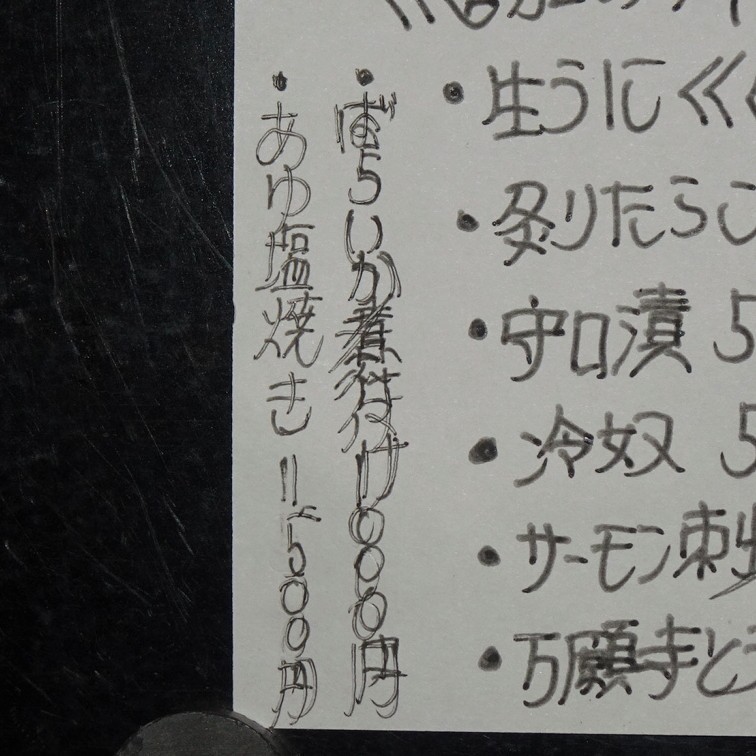 ・生うに
・炙りたらこ
・守口漬 5
・冷奴 5
・サーモン刺
・万願寺と
・ばらいか煮付け1000円
・あゆ塩焼き 1,500円